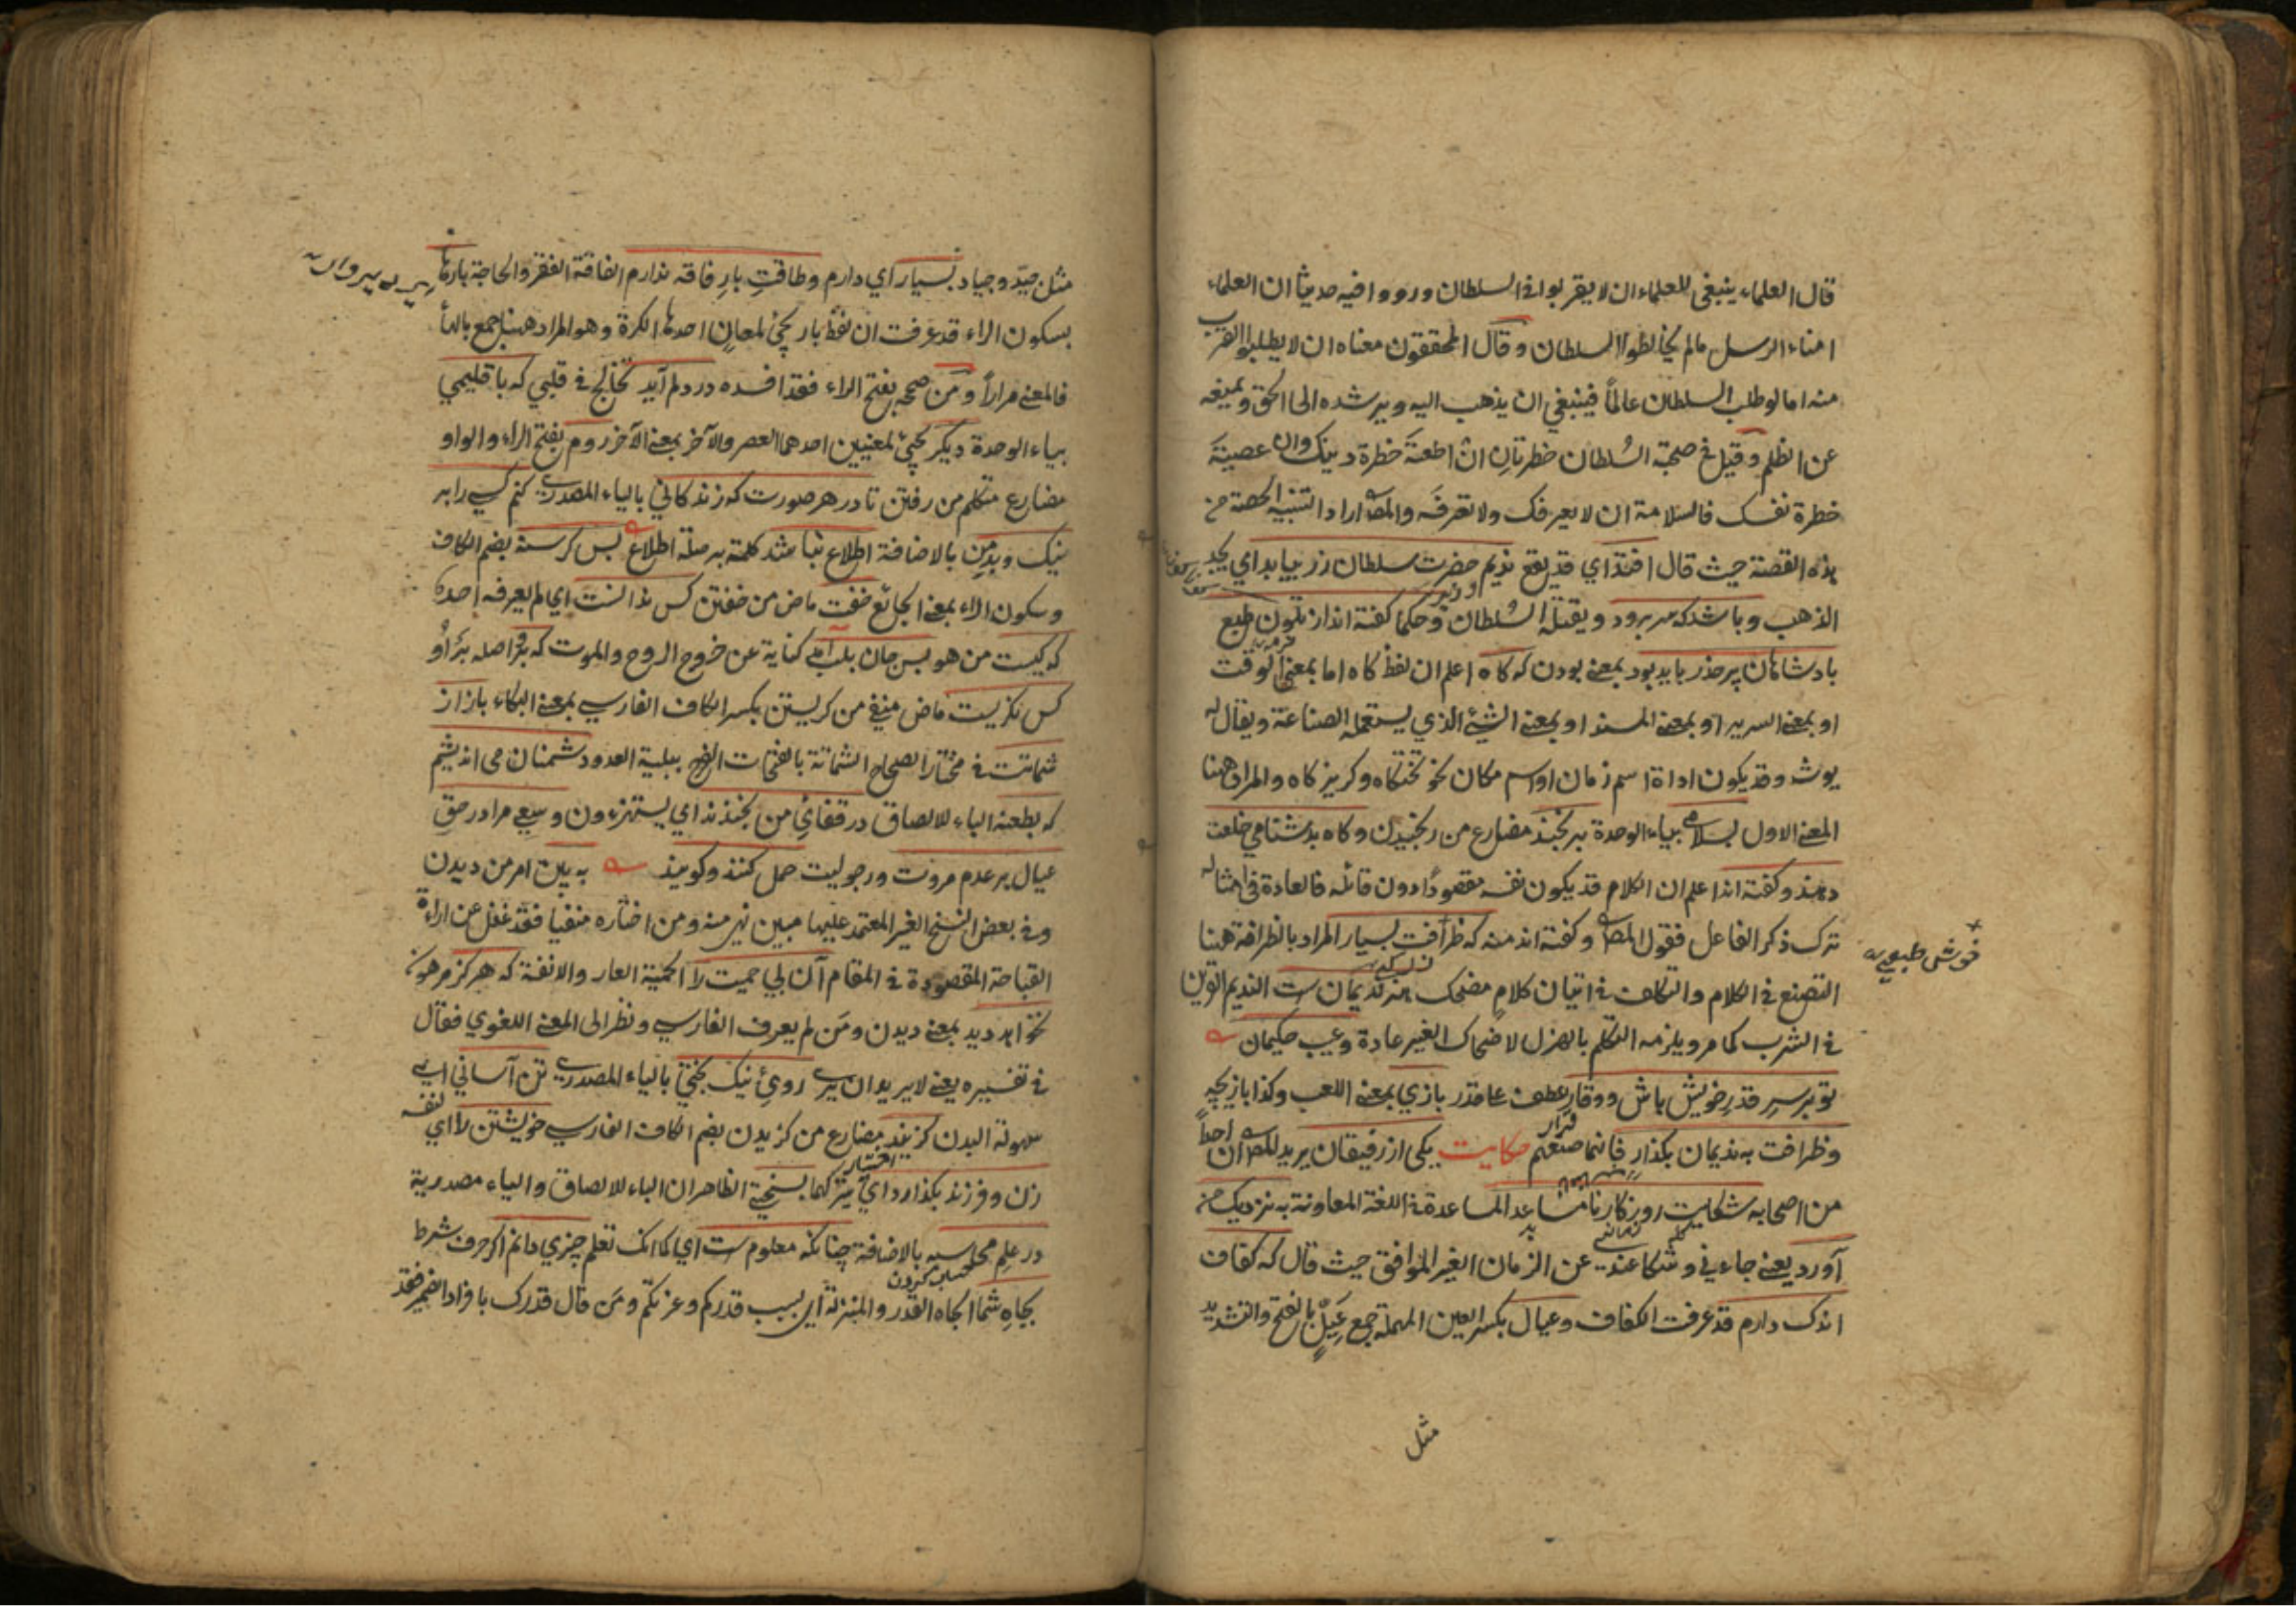 قال العلماء ينبغي للعلماء ان لا يقربوا في السلطان ورووا فيه حديثا ان العلماء
امناء الرسل ما لم يخالطوا السلطان وقال المحققون معناه ان لا يطلبوا القرب
منه اما لو طلب السلطان عالماً فينبغي ان يذهب اليه ويرشده الى الحق ويمنعه
عن الظلم وقيل في صحبة السُلطان خطرتانِ ان اطعتَه خطرة دينك وان عصيتَه
خطرة نفسك فالسلامة ان لا يعرفك ولا تعرفَه والمص اراد التنبيه الحصة من
هذه القصة حيث قال افتد اي قد يقع نديم حضرت سلطان زر بيابد اي يجد
الذهب وباشد كه سر برود ويقتله السُلطان وحكما كفته اند از تلون طبع
بادشاهان پر حذر بايد بود بمعنى بودن كه كاه اعلم ان لفظ كاه اما بمعنى الوقت
او بمعنى السرير او بمعنى المسند او بمعنى الشئ الذي يستعمله الصناعة ويقال له
يوشه وقد يكون اداة اسم زمان او اسم مكان نحو تختكاه وكريزكاه والمراد ههنا
المعنى الاول بسلامي بياء الوحدة برنجند مضارع من رنجيدن وكاه بدشنامي خلعت
دهند وكفته اند اعلم ان الكلام قد يكون نفسه مقصودًا دون قائله فالعادة في امثاله
ترك ذكر الفاعل فقول المص وكفته اند منه كه ظرافت بسيار المراد بالظرافة ههنا
خوش طبعي
التصنع في الكلام والتكلف في اتيان كلامٍ مضحك هنر نديمان ست النديم القرين
في الشرب كما مر ويلزمه التكلم بالهزل لاضحاك الغير عادة وعيب حكيمان
تو بر سرِ قدرِ خويش باش ووقار عطف على قدر بازي بمعنى اللعب وكذا بازيچه
وظرافت به نديمان بكذار فانما صنعهم حكايت يكى از رفيقان يريد المص ان احدا
من اصحابه شكايت روزكار نا مساعد المساعدة في اللغة المعاونة به نزديك من
آورد يعني جاءني وشكا عندي عن الزمان الغير الموافق حيث قال كه كفاف
اندك دارم قد عرفت الكفاف وعيال بكسر العين المهملة جمع عَيِّلٌ بالفتح والتشديد
مثل
مثل جيّد وجياد بسيار اي دارم وطاقتِ بارِ فاقه ندارم الفاقة الفقر والحاجة بارها
بسكون الراء قد عرفت ان لفظ بار يجئ لمعانٍ احدها الكرة وهو المراد ههنا جمع بالها
فالمعنى مراراً ومَن صححه بفتح الراء فقد افسده در دلم آيد تخالج في قلبي كه با قليمي
بياء الوحدة ديكر يجئ لمعنيين احدهما العصر والآخر بمعنى الآخر روم بفتح الراء والواو
مضارع متكلم من رفتن تا در هر صورت كه زندكاني بالياء المصدري كنم كسي را بر
نيك وبدِ من بالاضافة اطلاع نباشد كلمة بر صلة اطلاع بس كرسنه بضم الكاف
وسكون الراء بمعنى الجائع خفت ماض من خفتن كس ندانست اي لم يعرفه احد
كه كيست من هو بس جان بلب آمد كناية عن خروج الروح والموت كه برو اصله برْ اوْ
كس نكريست ماض منفي من كريستن بكسر الكاف الفارسي بمعنى البكاء باز از
شماتت في مختار الصحاح الشماتة بالفتحات الفرح ببلية العدو دشمنان مى انديشم
كه بطعنه الباء للالصاق در قفايِ من بخندند اي يستهزءون وسعي مرا در حقِ
عيال بر عدم مروت ورجوليت حمل كنند وكويند به بين امر من ديدن
وفي بعض النسخ الغير المعتمد عليها مبين نهي منه ومن اختاره منفيا فقد غفل عن ارادة
القباحة المقصودة في المقام آن بي حميت را الحمية العار والانفة كه هركز هركز
نخواهد ديد بمعنى ديدن ومَن لم يعرف الفارسي ونظر الى المعنى اللغوي فقال
في تفسيره يعني لا يريد ان يرى رويِ نيك بختي بالياء المصدري تن آساني اي
سهولة البدن كزيند مضارع من كزيدن بضم الكاف الفارسي خويشتن را اي نفسه
زن وفرزند بكذارد اي يترك كما بسختي الظاهر ان الباء للالصاق والياء مصدرية
در علمِ محاسبه بالاضافة چنانكه معلوم ست اي كما انك تعلم چيزي دانم اكر حرف شرط
بجاهِ شما الجاه القدر والمنزلة اي بسبب قدركم وعزتكم ومَن قال قدرك بافراد الضمير فقد